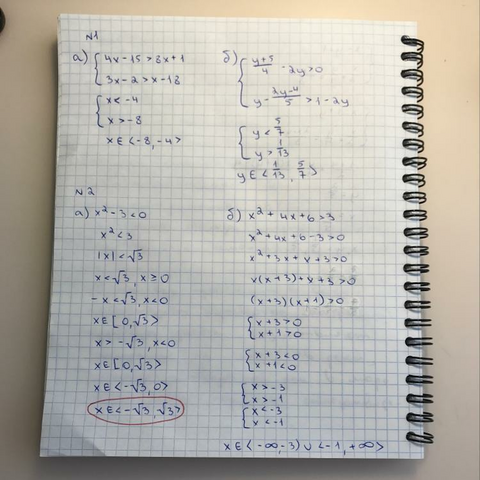 №1
а) { 4x - 15 > 8x + 1
3x - 2 > x - 18
{ x < -4
x > -8
x ∈ <-8, -4>
б) { (y+5)/4 - 2y > 0
y - (2y-4)/5 > 1 - 2y
{ y < 5/7
y > 1/13
y ∈ <1/13, 5/7>
№2
а) x² - 3 < 0
x² < 3
|x| < √3
x < √3, x ≥ 0
-x < √3, x < 0
x ∈ [0, √3>
x > -√3, x < 0
x ∈ [0, √3>
x ∈ <-√3, 0>
x ∈ <-√3, √3>
б) x² + 4x + 6 > 3
x² + 4x + 6 - 3 > 0
x² + 3x + x + 3 > 0
x(x+3) + x + 3 > 0
(x+3)(x+1) > 0
{ x + 3 > 0
x + 1 > 0
{ x + 3 < 0
x + 1 < 0
{ x > -3
x > -1
{ x < -3
x < -1
x ∈ <-∞, -3) ∪ <-1, +∞>